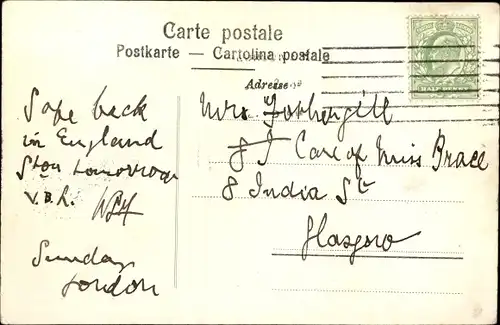 Carte postale
Postkarte — Cartolina postale
Adresse
HALF PENNY
Safe back
in England
tomorrow
Sunday
London
Mrs Fothergill
8 I Care of Miss Brace
8 India St
Glasgow